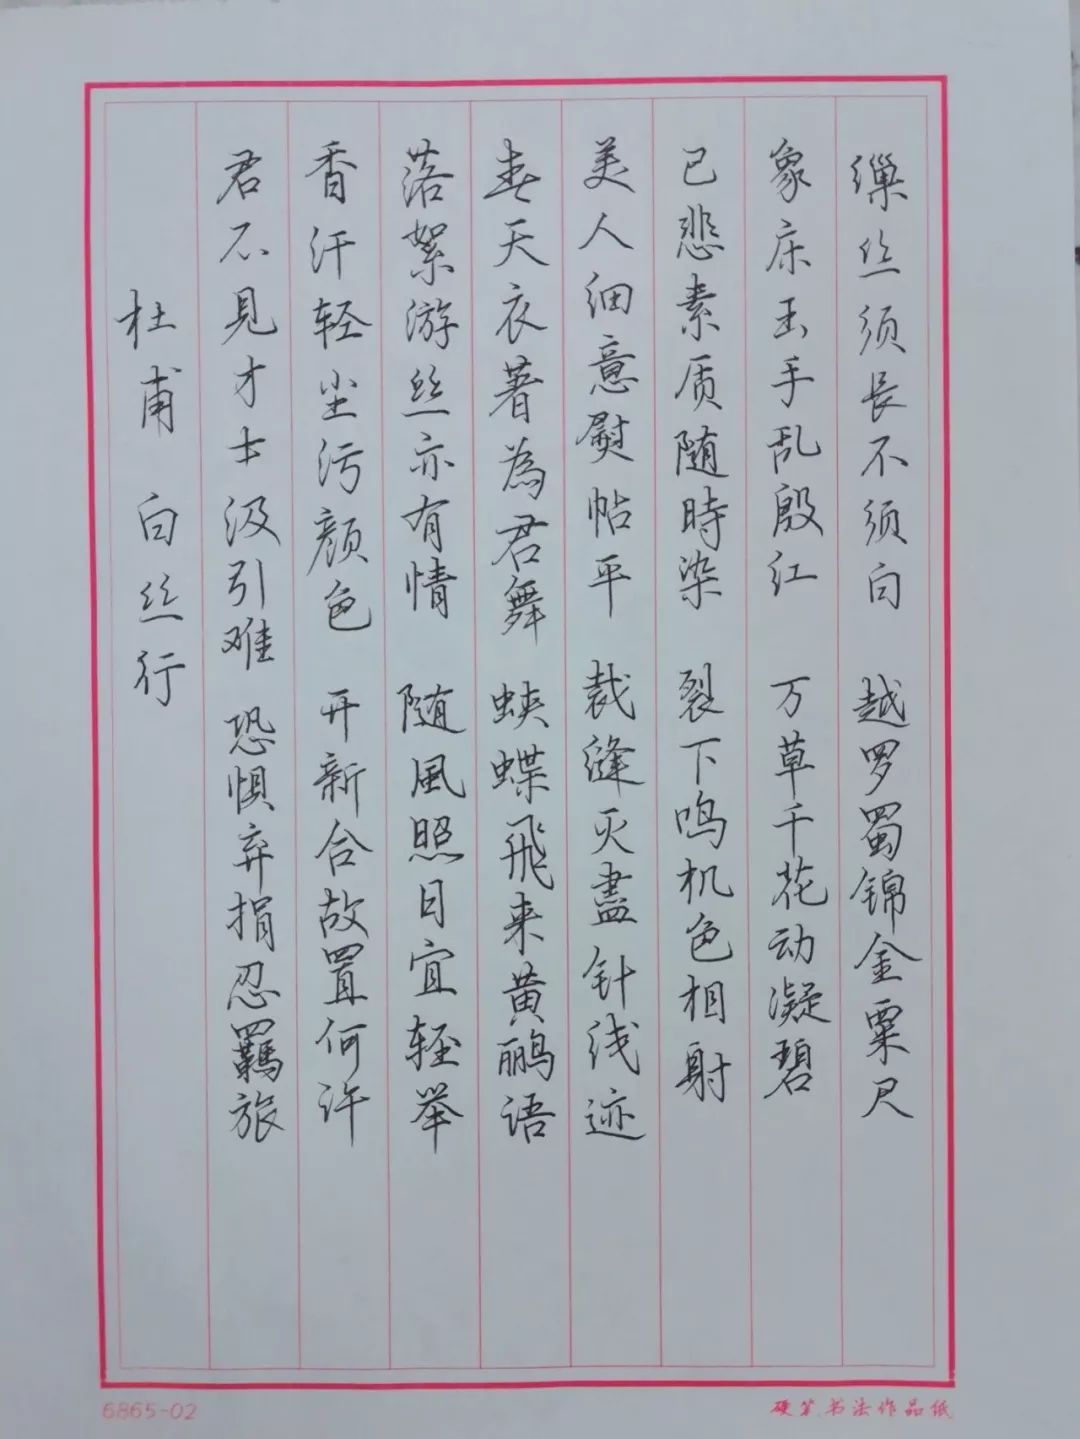 缫丝须长不须白 越罗蜀锦金粟尺
象床玉手乱殷红 万草千花动凝碧
已悲素质随時染 裂下鸣机色相射
美人细意熨帖平 裁缝灭盡针线迹
春天衣著為君舞 蛱蝶飛来黄鹂语
落絮游丝亦有情 随風照日宜轻举
香汗轻尘污颜色 开新合故置何许
君不見才士汲引难 恐惧弃捐忍羈旅
杜甫 白丝行
6865-02
硬笔书法作品纸